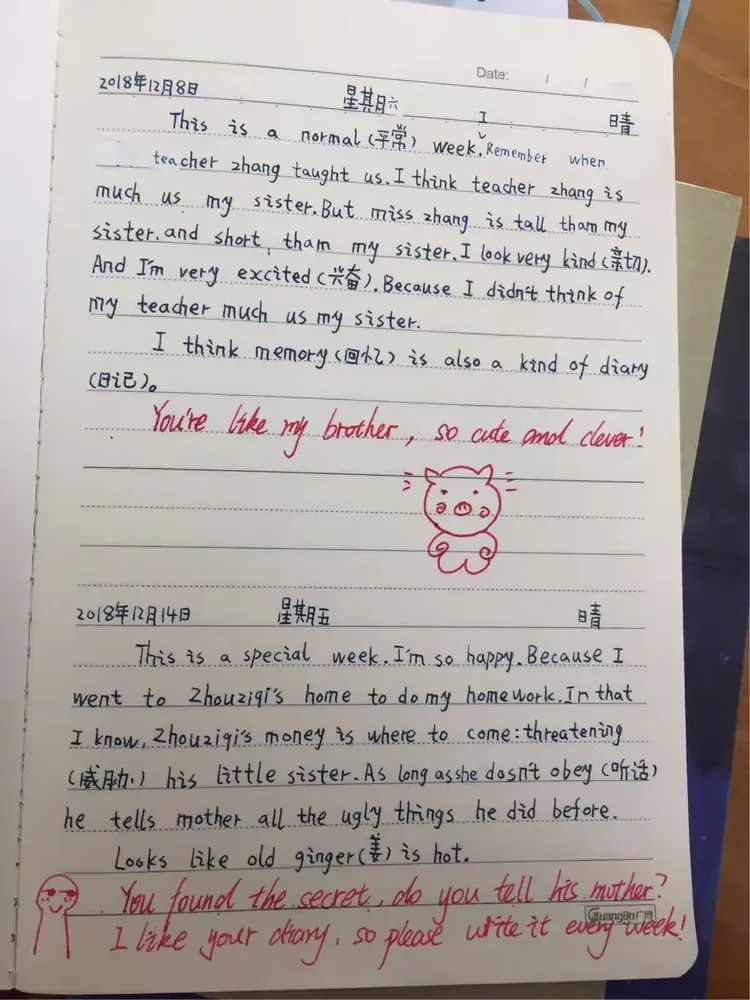 Date: / /
2018年12月8日 星期六 晴
This is a normal (平常) week. I Remember when
teacher zhang taught us. I think teacher zhang is
much us my sister. But miss zhang is tall tham my
sister. and short tham my sister. I look very kind (亲切).
And I'm very excited (兴奋). Because I didn't think of
my teacher much us my sister.
I think memory (回忆) is also a kind of diary
(日记)。
You're like my brother, so cute and clever!
2018年12月14日 星期五 晴
This is a special week. I'm so happy. Because I
went to Zhouziqi's home to do my homework. In that
I know, Zhouziqi's money is where to come: threatening
(威胁) his little sister. As long as she dosn't obey (听话)
he tells mother all the ugly things he did before.
Looks like old ginger (姜) is hot.
You found the secret, do you tell his mother?
GuangBo广博
I like your diary, so please write it every week!